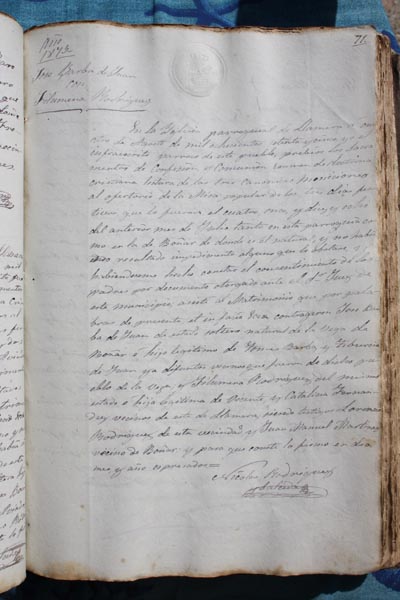 71
Año
1872
Jose Barba de Juan
con
Filomena Rodriguez
En la Iglesia parroquial de Llamera a
cuatro de Agosto de mil ochocientos setenta y
infrascrito parroco de este pueblo, recibidos los Sacra
mentos de Confesion y Comunion examen de doctrina
cristiana lectura de las tres Canonicas moniciones
al ofertorio de la Misa popular de los tres dias fes
tivos que lo fueron el catorce y
del anterior mes de Julio tanto en esta parroquia co
mo en la de Boñar de donde es el natural, y no habi
endo resultado impedimento alguno que lo obstase, y
habiendome hecho constar el consentimiento de los
padres por documento otorgado ante el Sr Juez de
este municipio, asisti al Matrimonio que por pala
bras de presente el in dicho dia contrageron Jose Bar
ba de Juan de estado soltero natural de la Vega de
Boñar é hijo legitimo de Tomas Barba y
de Juan ya difuntos vecinos que fueron de dicho pue
blo de la Vega, y Filomena Rodriguez del mismo
estado é hija legitima de Vicente y Catalina Fernan
dez vecinos de este de Llamera, siendo testigos Lorenzo
Rodriguez de esta vecindad y Juan Manuel Martinez
vecino de Boñar. y para que conste lo firmo en dia
mes y año espresados=
Nicolas Rodriguez